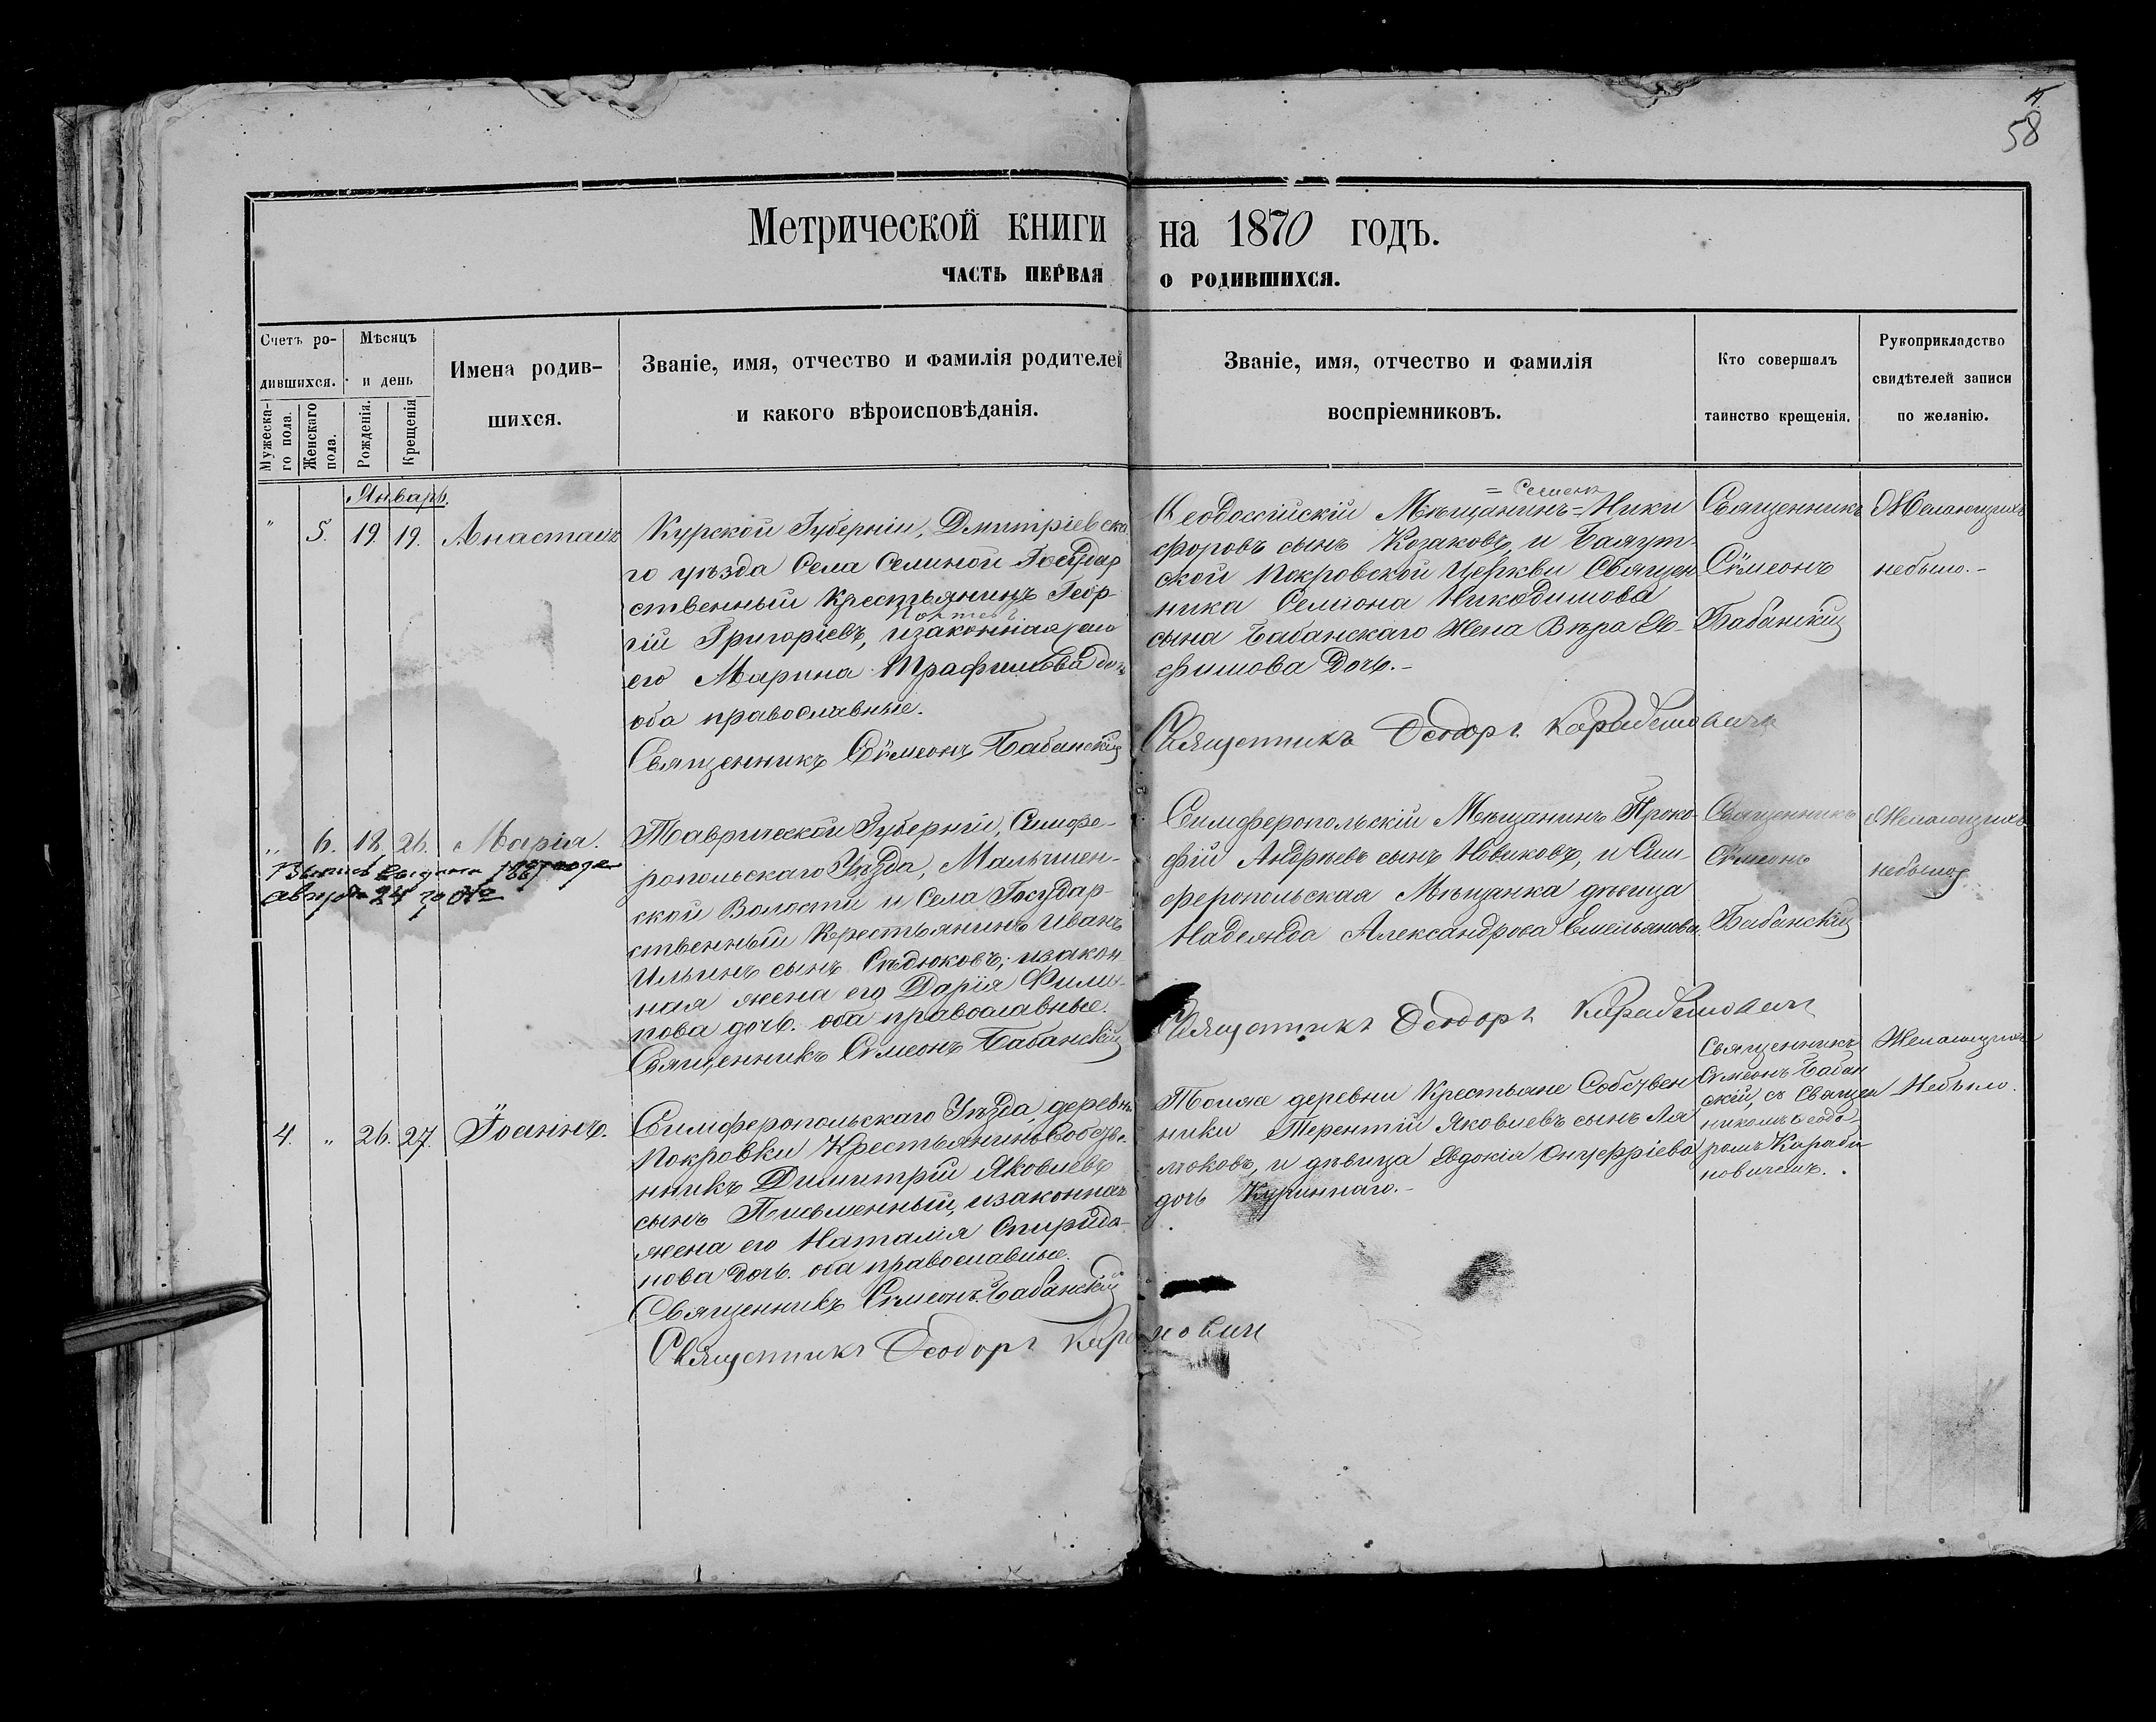 58
Метрической книги на 1870 годъ.
ЧАСТЬ ПЕРВАЯ О РОДИВШИХСЯ.
Счетъ ро-
дившихся.
Мужеска-
го пола.
Женскаго
пола.
Мѣсяцъ
и день
Рожденія.
Крещенія
Имена родив-
шихся.
Званіе, имя, отчество и фамилія родителей
и какого вѣроисповѣданія.
Званіе, имя, отчество и фамилія
воспріемниковъ.
Кто совершалъ
таинство крещенія.
Рукоприкладство
свидѣтелей записи
по желанію.
Январь.
" 5. 19. 19. Анастасія
Курской Губерніи, Дмитріевска
го уѣзда Села Селиной Государ
ственный Крестьянинъ Геор-
гій Григоріевъ, и законная
его Марина Трафимова доч
оба православные.
Священникъ Сѵмеонъ Бабанскій
= Семенъ
Ѳеодосійскій Мѣщанинъ = Ники
форовъ сынъ Козаковъ, и Баяут-
ской Покровской Церкви Священ
ника Семіона Никодимова
сына Бабанскаго Жена Вѣра Е-
фимова Дочь.-
Священникъ Ѳеодоръ
Священникъ
Сѵмеонъ
Бабанскій
Желающихъ
небыло.-
" 6. 18. 26. Марія.
августа 24 го
Таврической Губерніи, Симфе-
ропольскаго Уѣзда,
ской Волости и Села Государ-
ственный Крестьянинъ Иванъ
Ильинъ сынъ Сѣдюковъ; и закон
ная жена его Дарія Фили-
пова дочь. оба православные.
Священникъ Сѵмеонъ Бабанскій
Симферопольскій Мѣщанинъ Проко-
фій Андрѣевъ сынъ Новиковъ, и Сим-
феропольская Мѣщанка дѣвица
Надежда Александрова Емельянова.
Священникъ Ѳеодоръ
Священникъ
Сѵмеонъ
Бабанскій
Желающихъ
небыло
4. " 26. 27. Іоаннъ.
Симферопольскаго Уѣзда, деревни
Покровки Крестьянинъ Собстве-
нникъ Димитрій Яковлевъ
сынъ Письменный, и законная
жена его Наталія Спиридо-
нова дочь. оба православные.
Священникъ Сѵмеонъ Бабанскій
Священникъ Ѳеодоръ
Тойже деревни Крестьяне Собствен
ники Терентій Яковлевъ сынъ Ля
люковъ, и дѣвица Евдокія Онуфріева
дочь Куриннаго.-
Священникъ
Сѵмеонъ Бабан
скій, съ Священ
никомъ Ѳеодо-
ромъ
Желающихъ
Небыло.